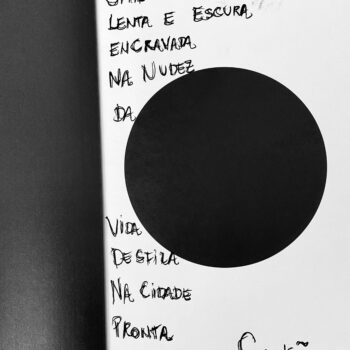 LENTA E ESCURA
ENCRAVADA
NA NUDEZ
DA
VIDA
DESFILA
NA CIDADE
PRONTA